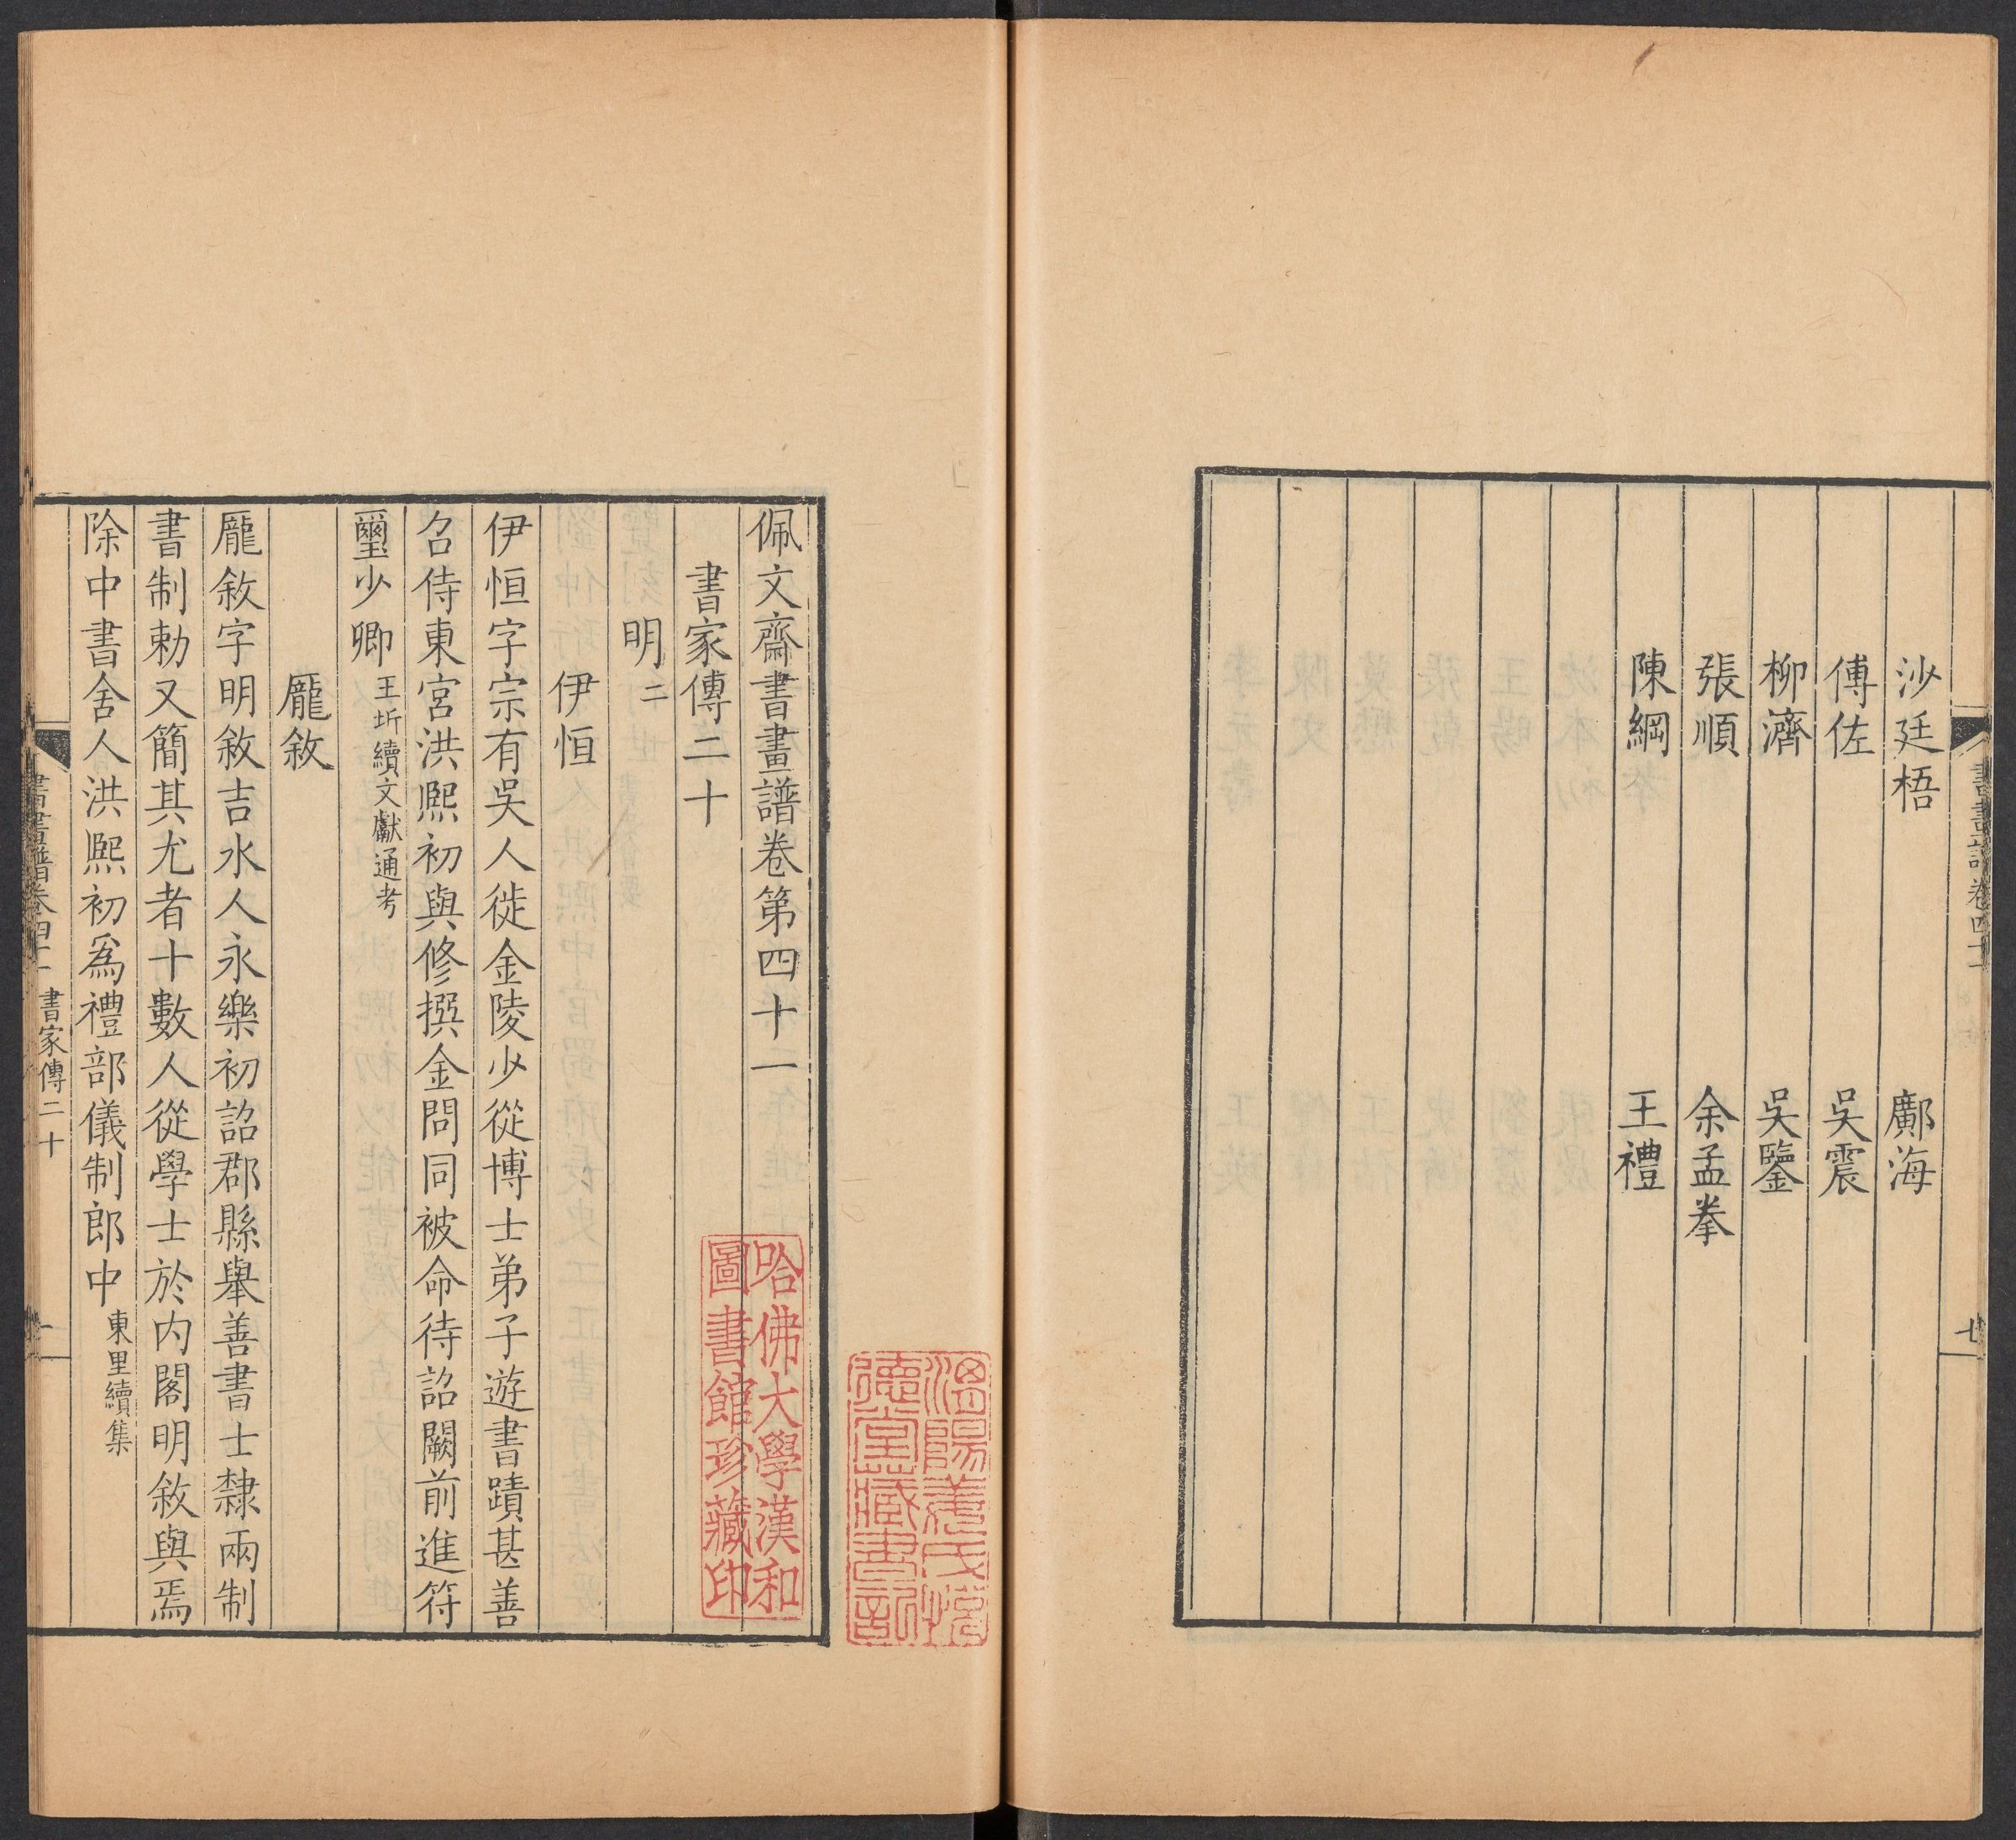 沙廷梧　鄺海
傅佐　吳震
柳濟　吳鑒
張順　余孟拳
陳綱　王禮
書畫譜卷四十一
七
佩文齋書畫譜卷第四十一
書家傳二十
明二
伊恒
伊恒字宗有吳人徙金陵少從博士弟子遊書蹟甚善
召侍東宮洪熙初與修撰金問同被命待詔闕前進符
璽少卿王圻續文獻通考
龐敘
龐敘字明敘吉水人永樂初詔郡縣舉善書士隸兩制
書制勅又簡其尤者十數人從學士於內閣明敘與焉
除中書舍人洪熙初爲禮部儀制郎中東里續集
書畫譜卷四十一　書家傳二十　一
哈佛大學漢和
圖書館珍藏印
德堂藏書記